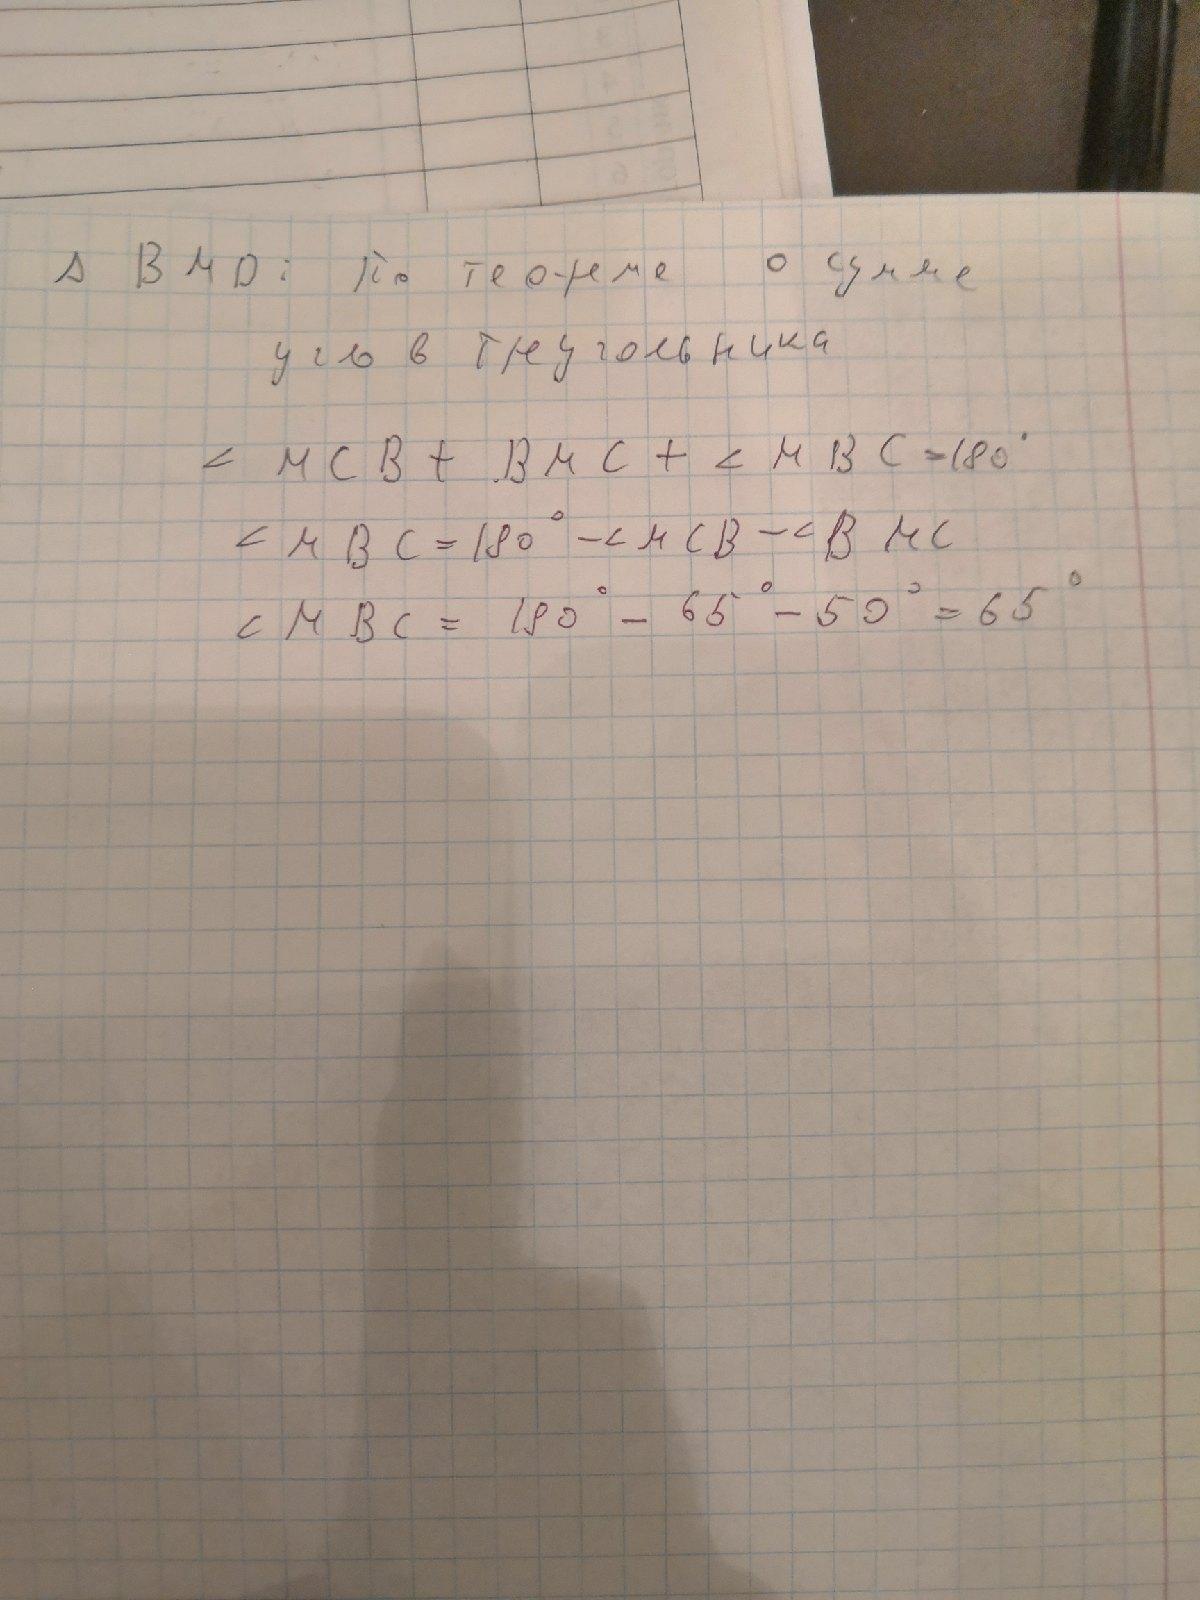 Δ BMD: По теореме о сумме
углов треугольника
< MCB + BMC + < MBC = 180°
< MBC = 180° - < MCB - < BMC
< MBC = 180° - 65° - 50° = 65°